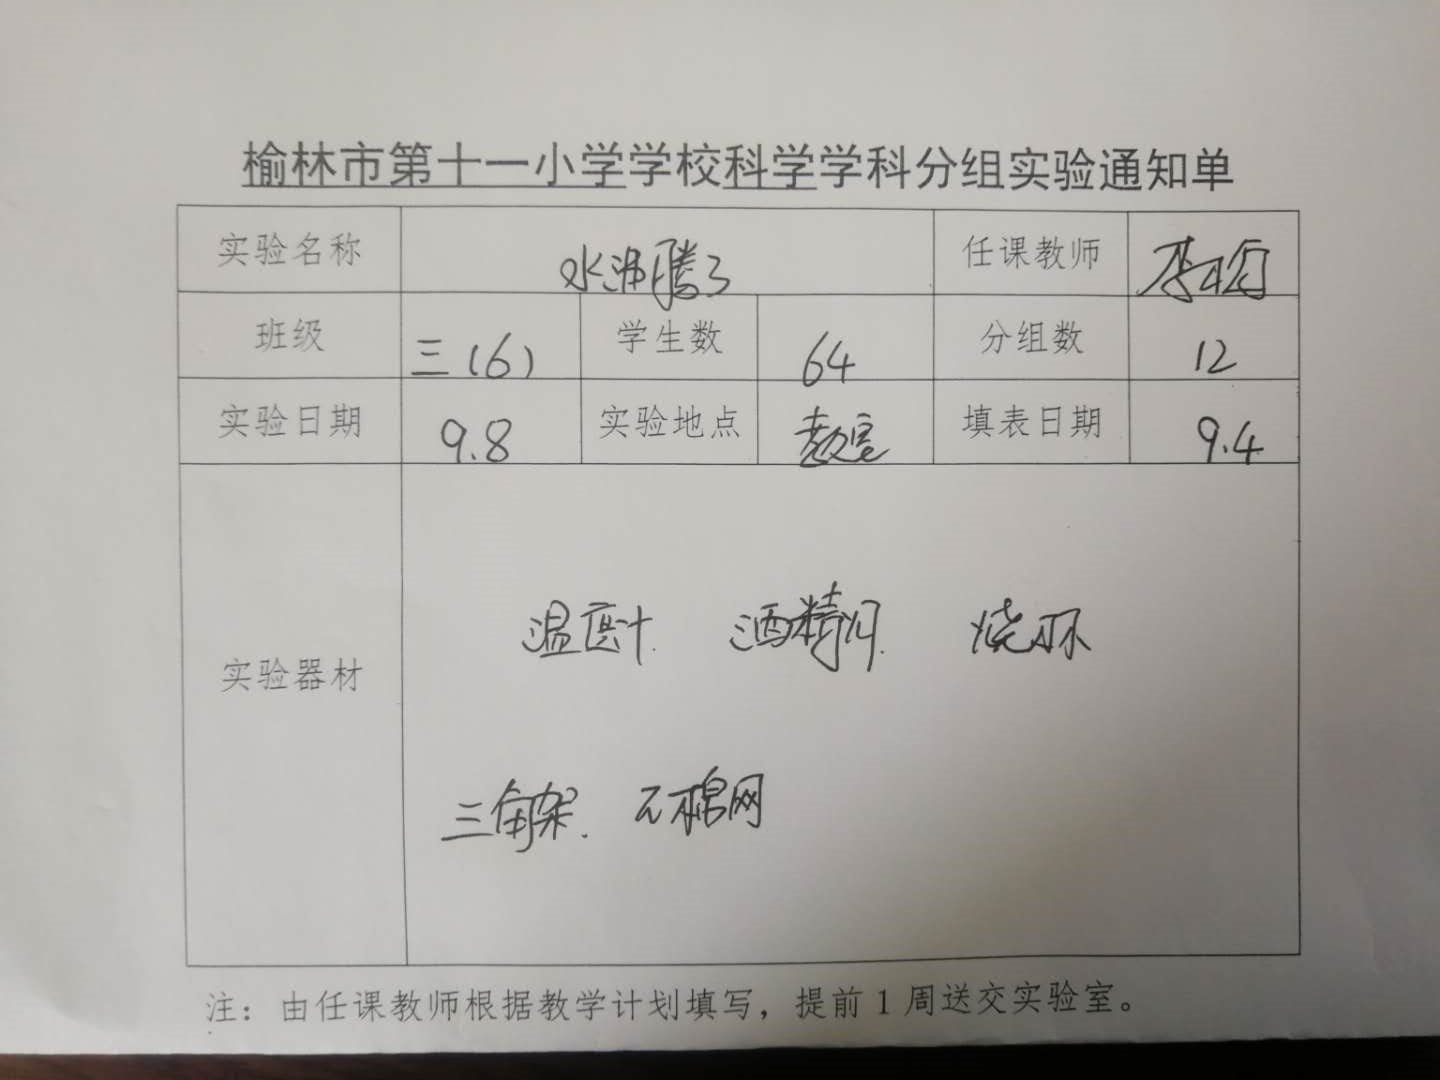 榆林市第十一小学学校科学学科分组实验通知单
实验名称 水沸腾了 任课教师 李
班级 三(6) 学生数 64 分组数 12
实验日期 9.8 实验地点 教室 填表日期 9.4
温度计 酒精灯 烧杯
实验器材
三角架 石棉网
注：由任课教师根据教学计划填写，提前1周送交实验室。